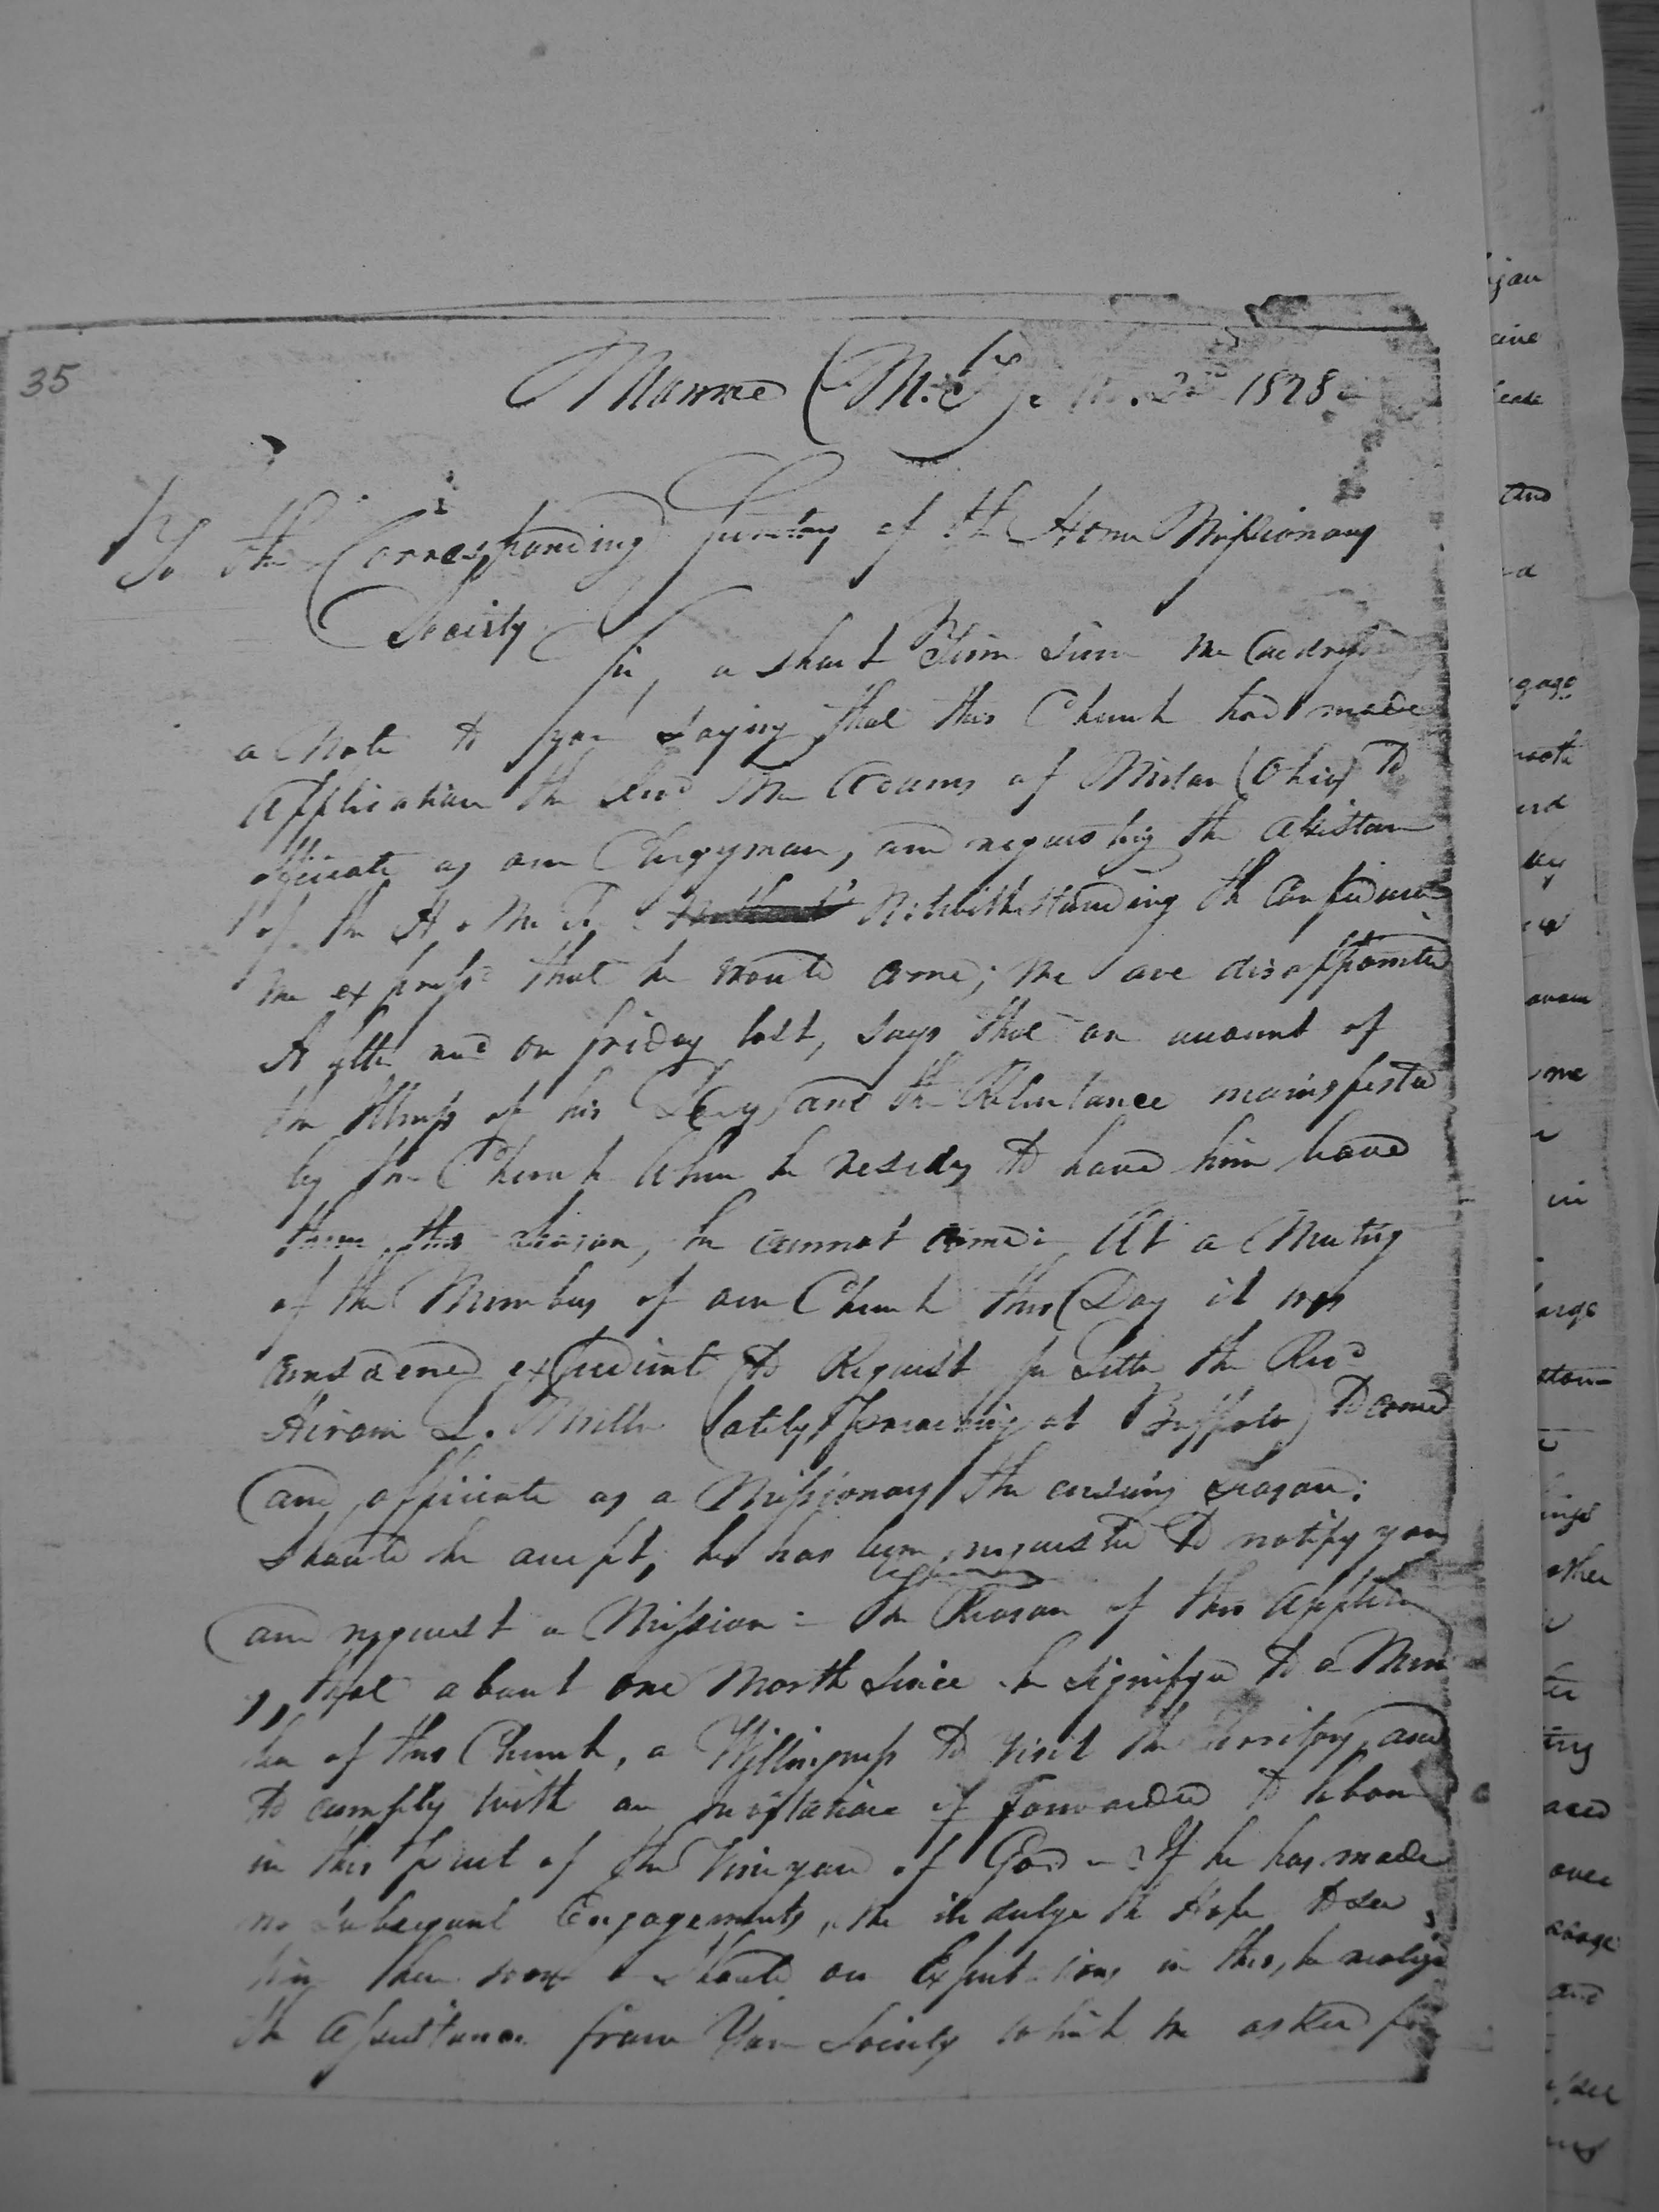 35
Monroe (M.T.) 1828
To the Corresponding Secretary of the Home Missionary
Society
Sir, a short Time since we address
a Note to you saying that this Church had made
Application the Revd Mr Adams of Milan (Ohio) to
officiate as our Clergyman, and requesting the assistance
of the H. M. S. Notwithstanding the Confidence
we expressd that he would come; we are disappointed
A letter recd on friday last, says that on account of
the Illness of his Lady, and the Reluctance manifested
by the Church where he resides to have him leave
them this season, he cannot come. At a Meeting
of the Members of our Church this Day it was
considered expedient to Request pr Letter the Revd
Hiram L. Miller (lately preaching at Buffalo) to come
and officiate as a Missionary the ensuing season;
should he accept, he has been requested to notify you
and request a Mission - The Reason of this Applica
is, that about one Month since he signifyed to a Mem
ber of this Church, a Willingness to visit the Territory, and
to comply with an invitation if forwarded to labour
in this part of the Vineyard of God - If he has made
no subsequent Engagements, we indulge the Hope to see
him here soon - Should our Expectations in this, be realized
the assistance from Your Society which we asked for